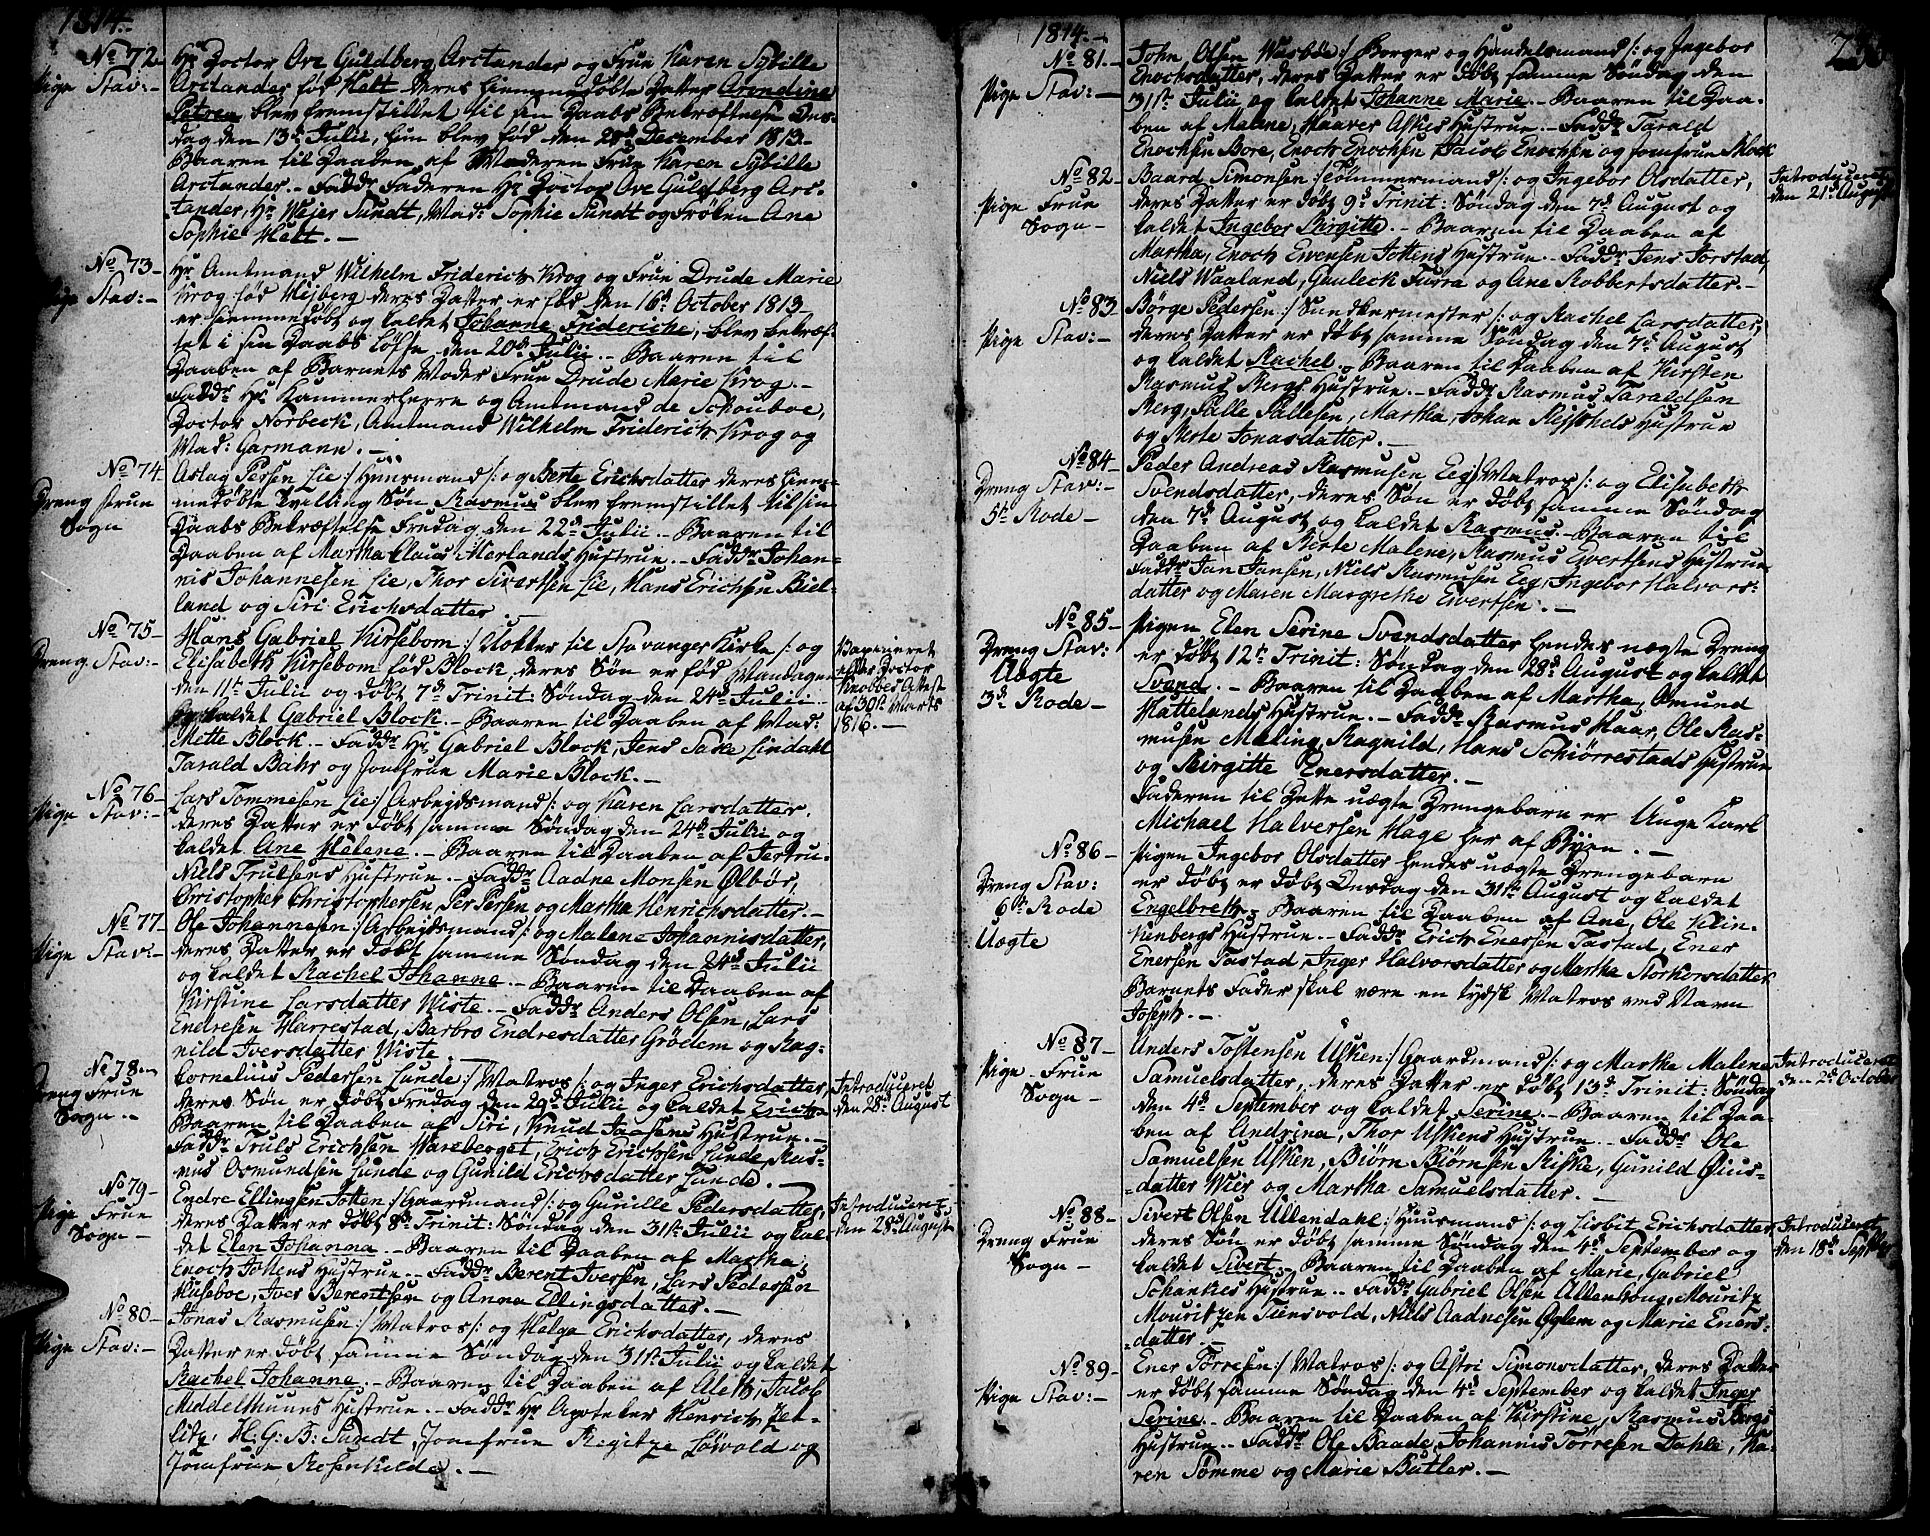 1814.
No 72
Pige Stav:
Hr Doctor Ove Guldberg Arctander og Frue Karen Sybille
Arctander fød Helt deres hiemmedøbte Datter Arendine
Petrea blev fremstillet til sin Daabs Bekræftelse Ons-
dag den 13d Julii, hun blev fød den 28d December 1813
Baaren til Daaben af Moderen Frue Karen Sybille
Arctander. Faddr Faderen Hr Doctor Ove Guldberg Arc-
tander, Hr Mejer Sundt, Mad: Sophie Sundt og Frøken Ane
Sophie Helt.
No 73
Pige Stav:
Hr Amtmand Wilhelm Friderich Krog og Frue Drude Marie
Krog fød Hejberg deres Datter er fød den 16d October 1813
er hiemmedøbt og kaldet Johanne Frideriche, blev bekræf-
tet i sin Daabs Løfte den 20d Julii. Baaren til
Daaben af Barnets Moder Frue Drude Marie Krog.
Faddr Hr Kammerherre og Amtmand de Schouboe,
Doctor Norbeck, Amtmand Wilhelm Friderich Krog og
Mad: Garmann.
No 74
Dreng Frue
Sogn
Aslag Persen Lie :/ Huusmand /: og Berte Erichsdatter deres hiem-
medøbte Tvilling Søn Rasmus blev fremstillet til sin
Daabs Bekræftelse Fredag den 22d Julii. Baaren til
Daaben af Martha Claus Merlands Hustrue. Faddr Johan-
nis Johannesen Lie, Thor Sivertsen Lie, Hans Erichsen Biel-
land og Siri Erichsdatter
No 75
Dreng Stav:
Hans Gabriel Kirsebom :/ Klokker til Stavanger Kirke /: og
Elisabeth Kirsebom fød Block, deres Søn er fød Mandagen
den 11te Julii og døbt 7d Trinit: Søndag den 24d Julii
kaldet Gabriel Block. Baaren til Daaben af Mad:
Mette Block. Faddr Hr Gabriel Block, Jens Sake Lindahl
Tarald Bahr og Jomfrue Marie Block.
Vaccineret
efter Doctor
Knobbes Attest
af 30te Marts
1816.
No 76
Pige Stav:
Lars Tommesen Lie :/ Arbejdsmand /: og Karen Larsdatter.
deres Datter er døbt samme Søndag den 24d Julii og
kaldet Ane Helene. Baaren til Daaben af Jertru.
Niels Trulsens Hustrue. Faddr Aadne Monsen Ølbør,
Christopher Christophersen, Per Persen og Martha Henrichsdatter.
No 77
Pige Stav:
Ole Johannesen :/ Arbejdsmand /: og Malene Johannisdatter,
deres Datter er døbt samme Søndag den 24d Julii
og kaldet Rachel Johanne. Baaren til Daaben af
Kirstine Larsdatter Wiste. Faddr Anders Olsen, Lars
Endresen Harrestad, Barbro Endresdatter Grødem og Rag-
nild Iversdatter Wiste
No 78
Dreng Frue
Sogn.
Cornelius Pedersen Lunde :/ Matros /: og Inger Erichsdatter,
deres Søn er døbt Fredag den 29d Julii og kaldet Erich
Baaren til Daaben af Siri, Knud Jansens Hustrue.
Faddr Truls Erichsen Wareberget, Erich Erichsen Lunde, Ras-
mus Osmundsen Lunde og Gunild Erichsdatter Lunde.
Introduceret
den 28d August
No 79
Pige Frue
Sogn
Endre Ellingsen Jotten :/ Gaardmand /: og Gunille Pedersdatter,
deres Datter er døbt 8d Trinit: Søndag den 31te Julii og kal-
det Elen Johanna. Baaren til Daaben af Martha,
Enoch Jottens Hustrue. Faddr Berent Iversen, Lars Pedersen
Huseboe, Iver Berentsen og Anna Ellingsdatter.
Introduceret
den 28d August
No 80
Pige Stav:
Jonas Rasmusen :/ Matros /: og Helga Erichsdatter, deres
Datter er døbt samme Søndag den 31te Julii og kaldet
Rachel Johanne. Baaren til Daaben af Aleth, Jacob
Middelthuuns Hustrue. Faddr Hr Apoteker Henrich Zet-
litz, H: G: B: Sundt, Jomfrue Regitze Løwold og
Jomfrue Rosenkilde.
1814.
No 81
Pige Stav:
John Olsen Wasbøe :/ Borger og Handelsmand /: og Ingebor
Enochsdatter, deres Datter er døbt samme Søndag den
31te Julii og kaldet Johanne Marie. Baaren til Daa-
ben af Malene, Haaver Askes Hustrue. Faddr Tarald
Enochsen Bore, Enoch Enochsen, Jacob Enochsen og Jomfrue Block
No 82
Pige Frue
Sogn
Baard Simonsen :/ Tømmermand /: og Ingebor Olsdatter,
deres Datter er døbt 9d Trinit: Søndag den 7d August og
kaldet Ingebor Birgitte. Baaren til Daaben af
Martha, Enoch Evensen Jottens Hustrue. Faddr Jens Jorstad,
Niels Waaland, Gauleck Furra og Ane Robbertsdatter.
Introduceret
den 21d August
No 83
Pige Stav:
Børge Pedersen :/ Bundkermester /: og Rachel Larsdatter,
deres Datter er døbt samme Søndag den 7d August
og kaldet Rachel. Baaren til Daaben af Kirsten
Rasmus Bergs Hustrue. Faddr Rasmus Taraldsen
Berg, Palle Pallesen, Martha, Johan Rejschels Hustrue
og Berte Jonasdatter.
No 84
Dreng Stav:
5te Rode
Peder Andreas Rasmusen Eeg :/ Matros /: og Elisabeth
Svendsdatter, deres Søn er døbt samme Søndag
den 7d August og kaldet Rasmus. Baaren til
Daaben af Berte Malene, Rasmus Eivertsens Hustrue
Faddr Jan Jansen, Niels Rasmusen Eeg, Ingebor Halvors-
datter og Maren Margrethe Eivertsen.
No 85
Dreng Stav:
Uægte
3d Rode
Pigen Elen Serine Svendsdatter hendes uægte Dreng
er døbt 12te Trinit: Søndag den 28d August og kaldet
Svend. Baaren til Daaben af Martha, Omund
Hattelands Hustrue. Faddr Rasmus Haar, Ole Ras-
musen Maling, Ragnild, Hans Schiørrestads Hustrue
og Birgitte Enersdatter.
Faderen til dette uægte Drengebarn er Unge Karl
Michael Halversen Hage her af Byen.
No 86
Dreng Stav:
6te Rode
Uægte
Pigen Ingebor Olsdatter hendes uægte Drengebarn
er døbt er døbt Onsdag den 31te August og kaldet
Engelbreth. Baaren til Daaben af Ane, Ole Klin-
kenbergs Hustrue. Faddr Erich Enersen Tastad, Ener
Enersen Tastad, Inger Halvorsdatter og Martha Storkorsdatter
Barnets Fader skal være en tydsk Matros ved Navn
Joseph.
No 87
Pige Frue
Sogn
Anders Tostensen Usken :/ Gaardmand /: og Marthe Malene
Samuelsdatter, deres Datter er døbt 13d Trinit: Søndag
den 4d September og kaldet Serine. Baaren til Daa-
ben af Andrina, Thor Uskens Hustrue. Faddr Ole
Samuelsen Usken, Biørn Biørnsen Riske, Gunild Øius-
datter Wier og Martha Samuelsdatter.
Introduceret
den 2d October
No 88
Dreng Frue
Sogn
Sivert Olsen Ullendahl :/ Huusmand /: og Lisbit Erichsdatter
deres Søn er døbt samme Søndag den 4d September og
kaldet Sivert. Baaren til Daaben af Marie, Gabriel
Schankes Hustrue. Faddr Gabriel Olsen Altenhoug, Mouritz
Mouritzen Tiensvold, Niels Aadnesen Oglem og Marie Eners-
datter.
Introduceret
den 18d Septbr
No 89
Pige Stav:
Ener Tørresen :/ Matros /: og Astri Simonsdatter, deres Datter
er døbt samme Søndag den 4d September og kaldet Inger
Serine. Baaren til Daaben af Kirstine, Rasmus Bergs
Hustrue. Faddr Ole Baade, Johannis Tørresen Dahle, Ka-
ren Sømme og Marie Butler.